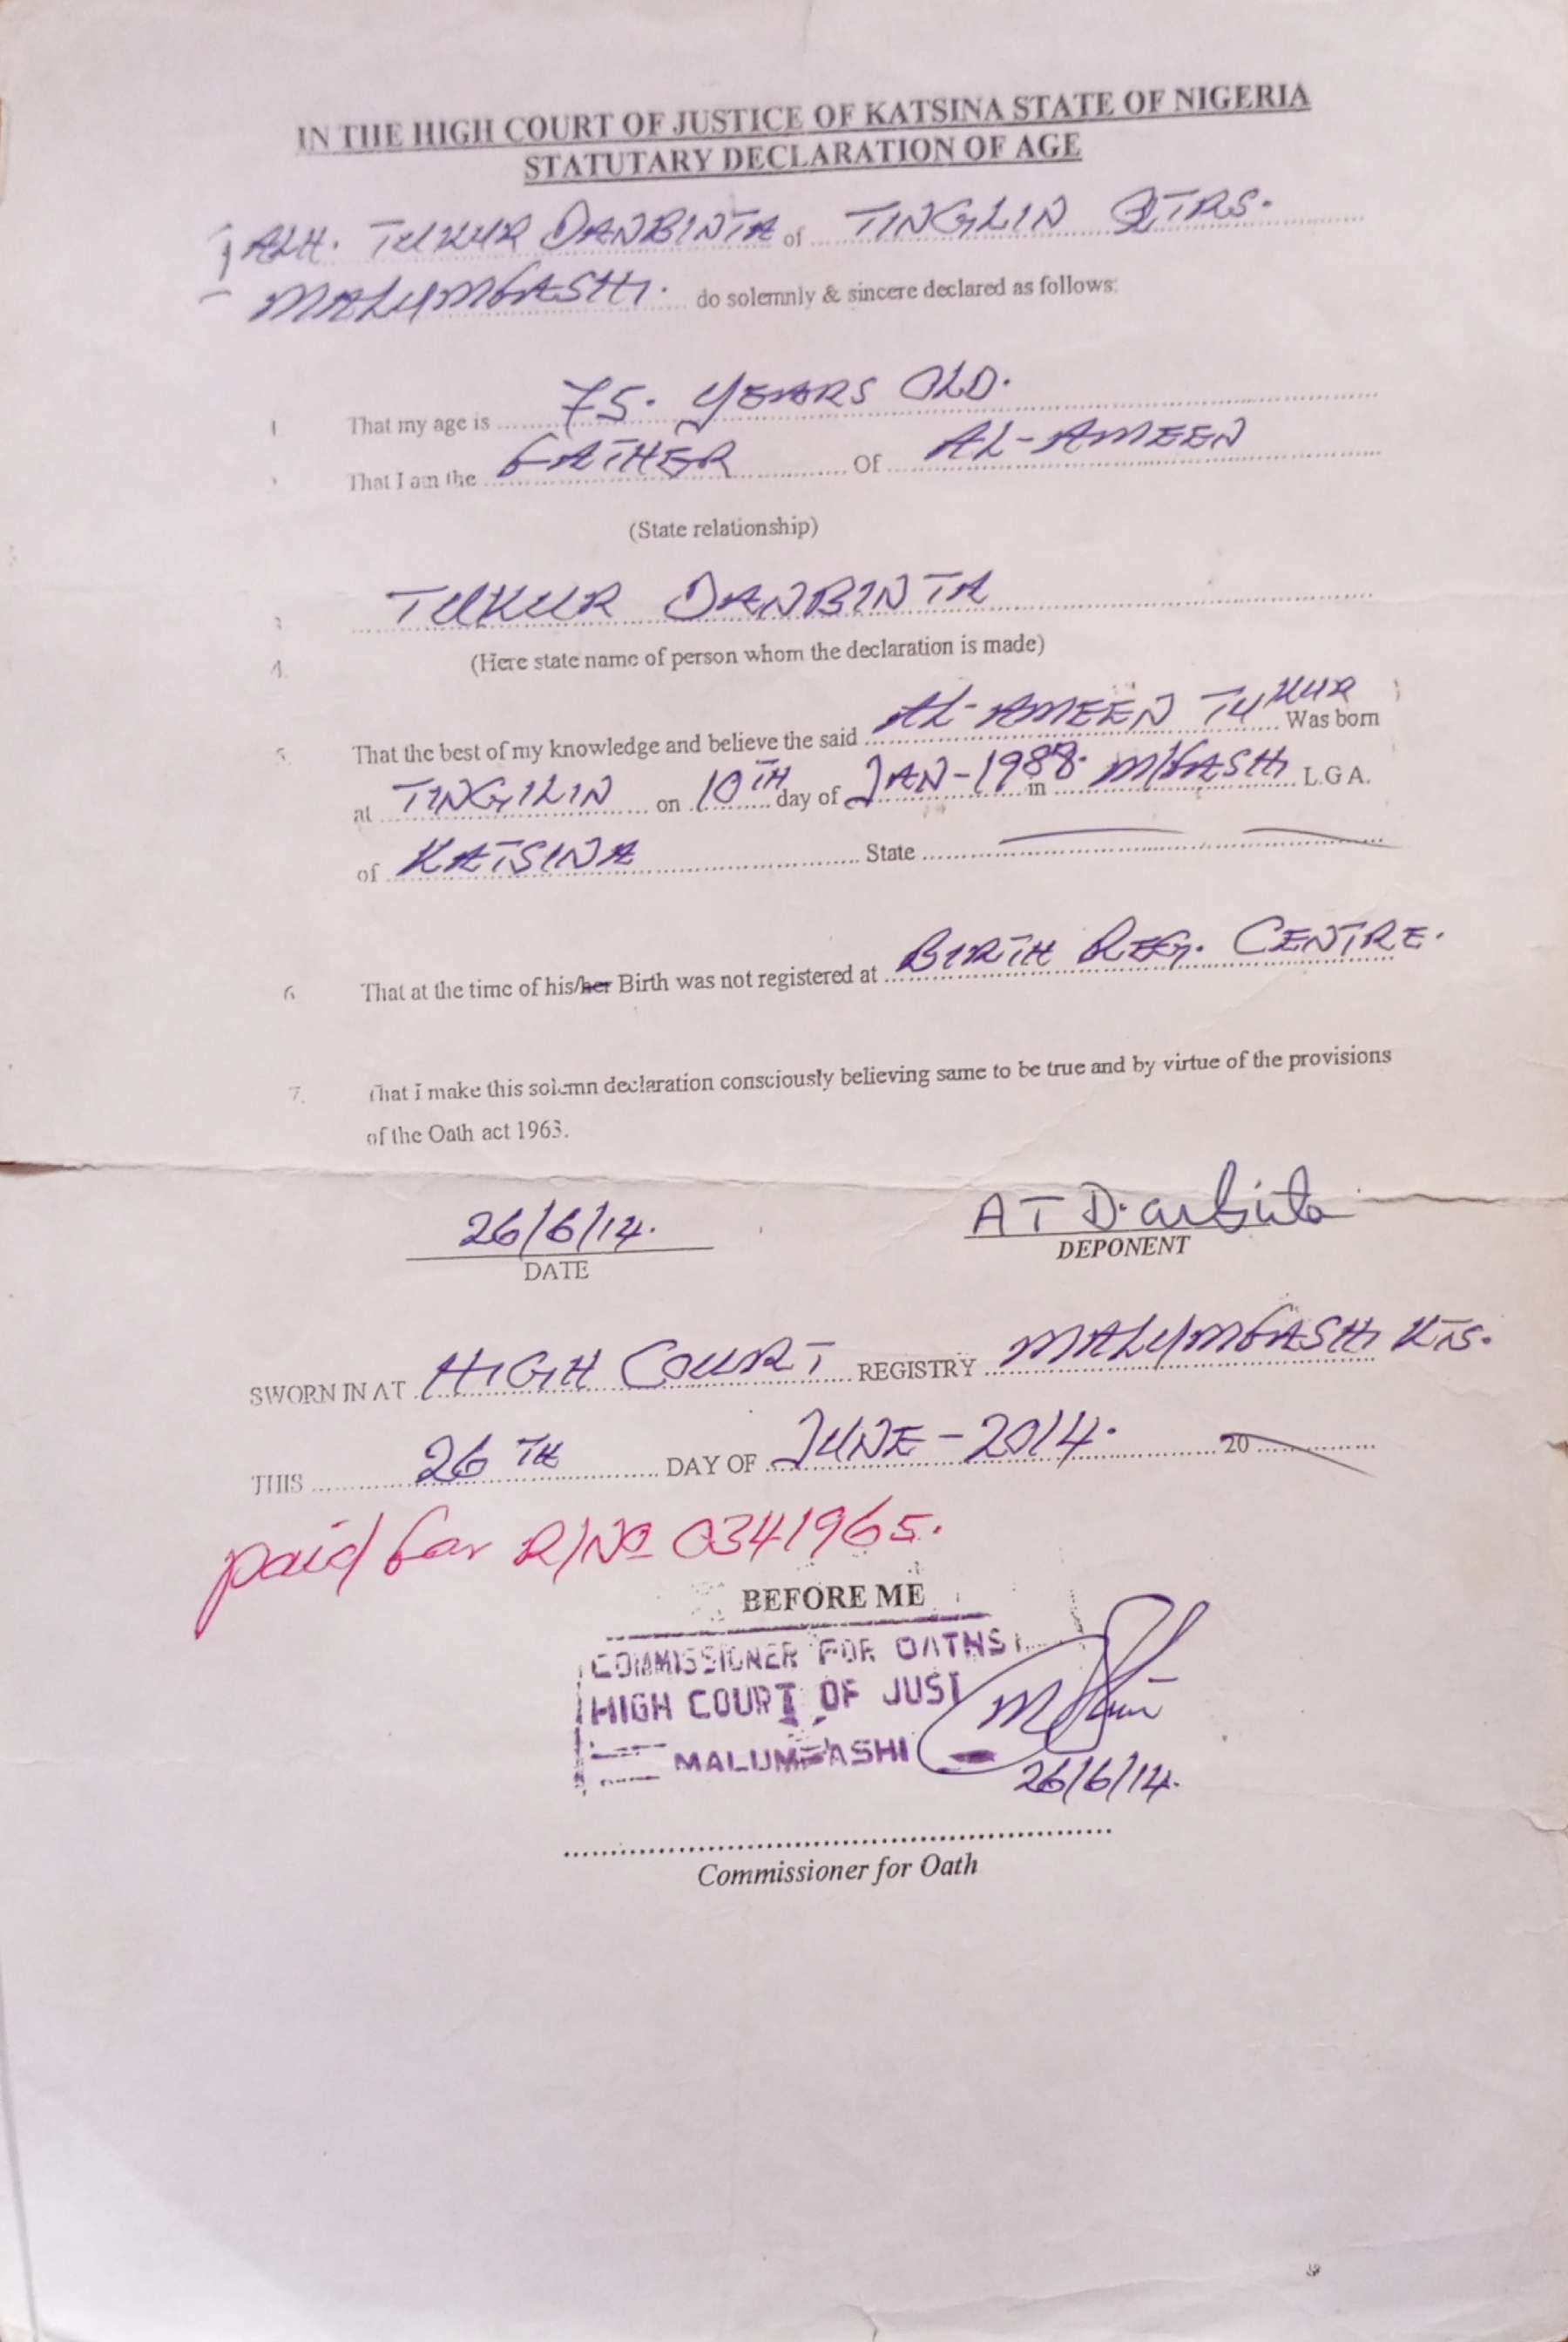 IN THE HIGH COURT OF JUSTICE OF KATSINA STATE OF NIGERIA
STATUTARY DECLARATION OF AGE
I ALH. TUKUR DANBINTA of TINGLIN QTRS.
MALUMFASHI. do solemnly & sincere declared as follows:
1 That my age is 75. YEARS OLD.
That I am the FATHER Of AL-AMEEN
(State relationship)
3 TUKUR DANBINTA
4. (Here state name of person whom the declaration is made)
5. That the best of my knowledge and believe the said AL-AMEEN TUKUR Was born
at TINGILIN on 10TH day of JAN-1988. in M/FASHI L.G.A.
of KATSINA State
6 That at the time of his/her Birth was not registered at BIRTH REG. CENTRE.
7. That I make this solemn declaration consciously believing same to be true and by virtue of the provisions
of the Oath act 1963.
26/6/14. A T Danbinta
DATE DEPONENT
SWORN IN AT HIGH COURT REGISTRY MALUMFASHI KTS.
THIS 26TH DAY OF JUNE-2014. 20
paid for R/No 0341965.
BEFORE ME
COMMISSIONER FOR OATHS
HIGH COURT OF JUSTI
MALUMFASHI
26/6/14.
Commissioner for Oath